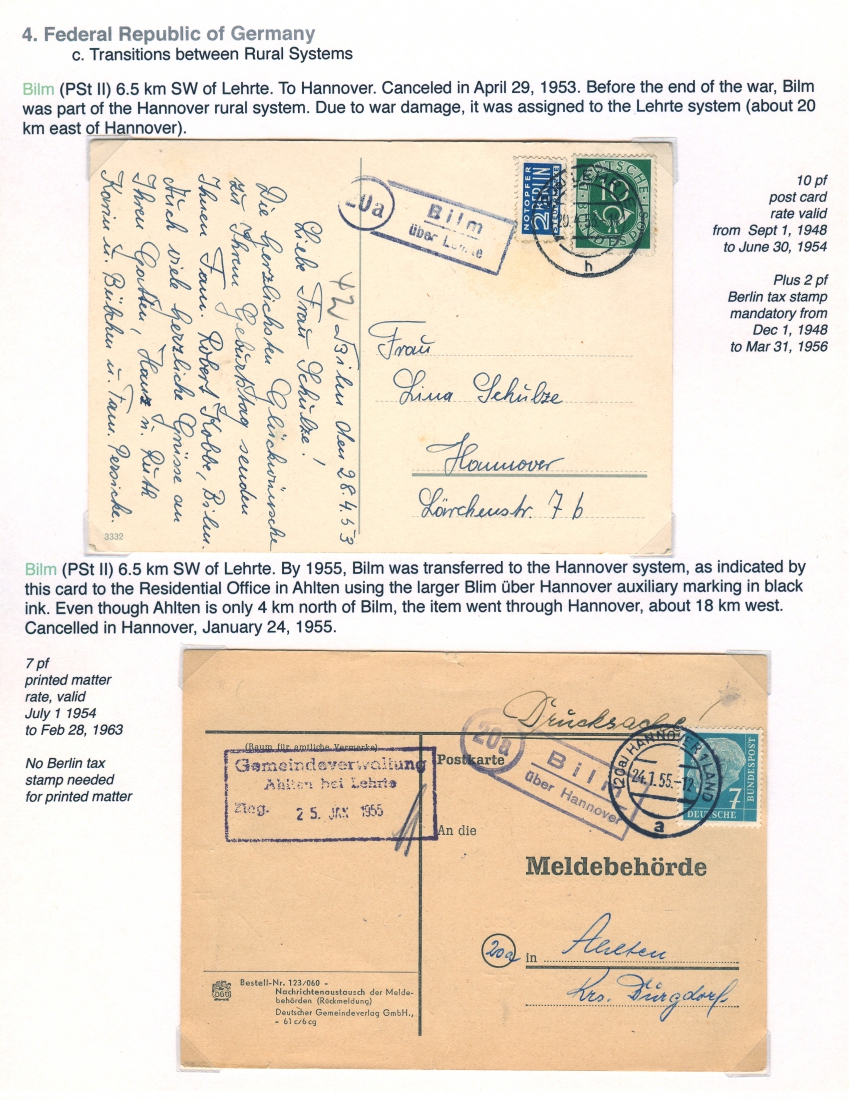 4. Federal Republic of Germany
c. Transitions between Rural Systems
Bilm (PSt II) 6.5 km SW of Lehrte. To Hannover. Canceled in April 29, 1953. Before the end of the war, Bilm
was part of the Hannover rural system. Due to war damage, it was assigned to the Lehrte system (about 20
km east of Hannover).
10 pf
post card
rate valid
from Sept 1, 1948
to June 30, 1954
Plus 2 pf
Berlin tax stamp
mandatory from
Dec 1, 1948
to Mar 31, 1956
20a
Bilm
über Lehrte
NOTOPFER
2 BERLIN
STEUERMARKE
DEUTSCHE
10
h
42
Bilm den 28.4.53
Liebe Frau Schulze!
Die herzlichsten Glückwünsche
zu Ihrem Geburtstag senden
Ihnen Fam. Robert Kobbe, Bilm.
Auch viele herzliche Grüsse an
Ihren Gatten, Hans u. Ruth
Karin u. Bübchen u. Fam.
Frau
Lina Schulze
Hannover
Lärchenstr. 7 b
3332
Bilm (PSt II) 6.5 km SW of Lehrte. By 1955, Bilm was transferred to the Hannover system, as indicated by
this card to the Residential Office in Ahlten using the larger Blim über Hannover auxiliary marking in black
ink. Even though Ahlten is only 4 km north of Bilm, the item went through Hannover, about 18 km west.
Cancelled in Hannover, January 24, 1955.
7 pf
printed matter
rate, valid
July 1 1954
to Feb 28, 1963
No Berlin tax
stamp needed
for printed matter
Drucksache!
20a
Bilm
über Hannover
(20a) HANNOVER 1 LAND
24.1.55.-12
a
7
DEUTSCHE
BUNDESPOST
(Raum für amtliche Vermerke)
Gemeindeverwaltung
Ahlten bei Lehrte
Eing.
25. JAN 1955
Postkarte
An die
Meldebehörde
20a in Ahlten
Krs. Burgdorf
Bestell-Nr. 123/060 -
Nachrichtenaustausch der Melde-
behörden (Rückmeldung)
Deutscher Gemeindeverlag GmbH.,
- 61 c/6 cg